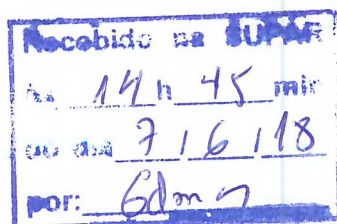 Recebido na SUPAR
às 14 h 45 min
do dia 7 / 6 / 18
por: